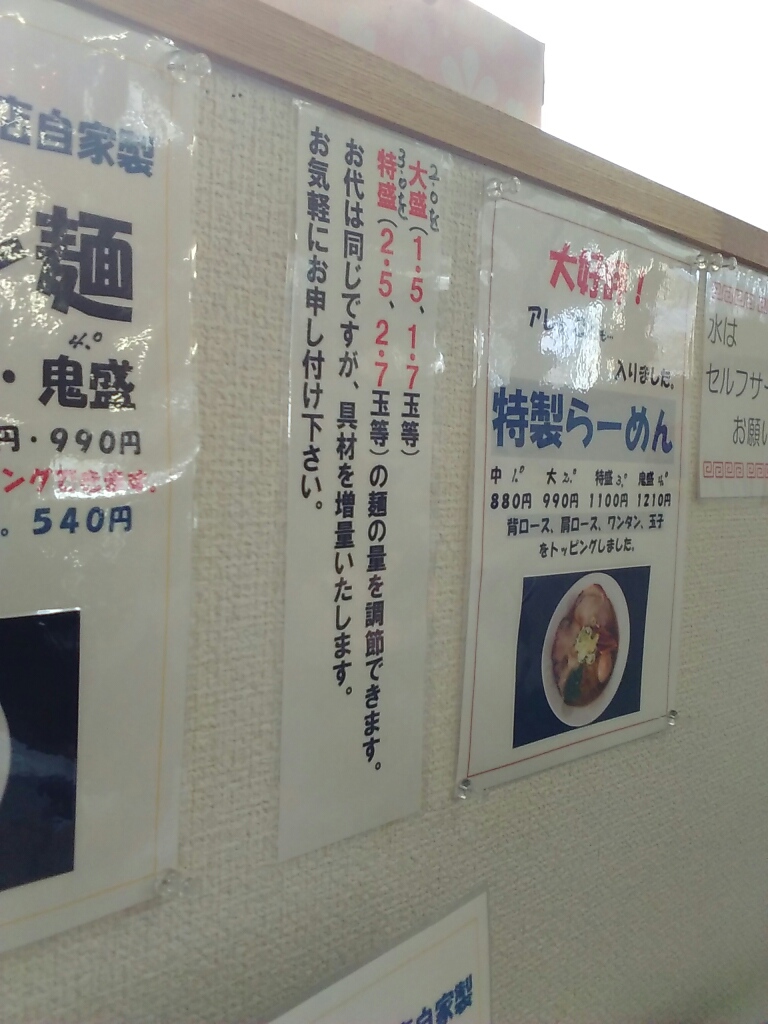 店自家製
麺
4.0
・鬼盛
円・990円
。540円
2.0を
大盛(1.5、1.7玉等)
3.0を
特盛(2.5、2.7玉等)の麺の量を調節できます。
お代は同じですが、具材を増量いたします。
お気軽にお申し付け下さい。
大好評!
入りました。
特製らーめん
中 1.0 大 2.0 特盛 3.0 鬼盛 4.0
880円 990円 1100円 1210円
背ロース、肩ロース、ワンタン、玉子
をトッピングしました。
水は
セルフサー
お願い
自家製